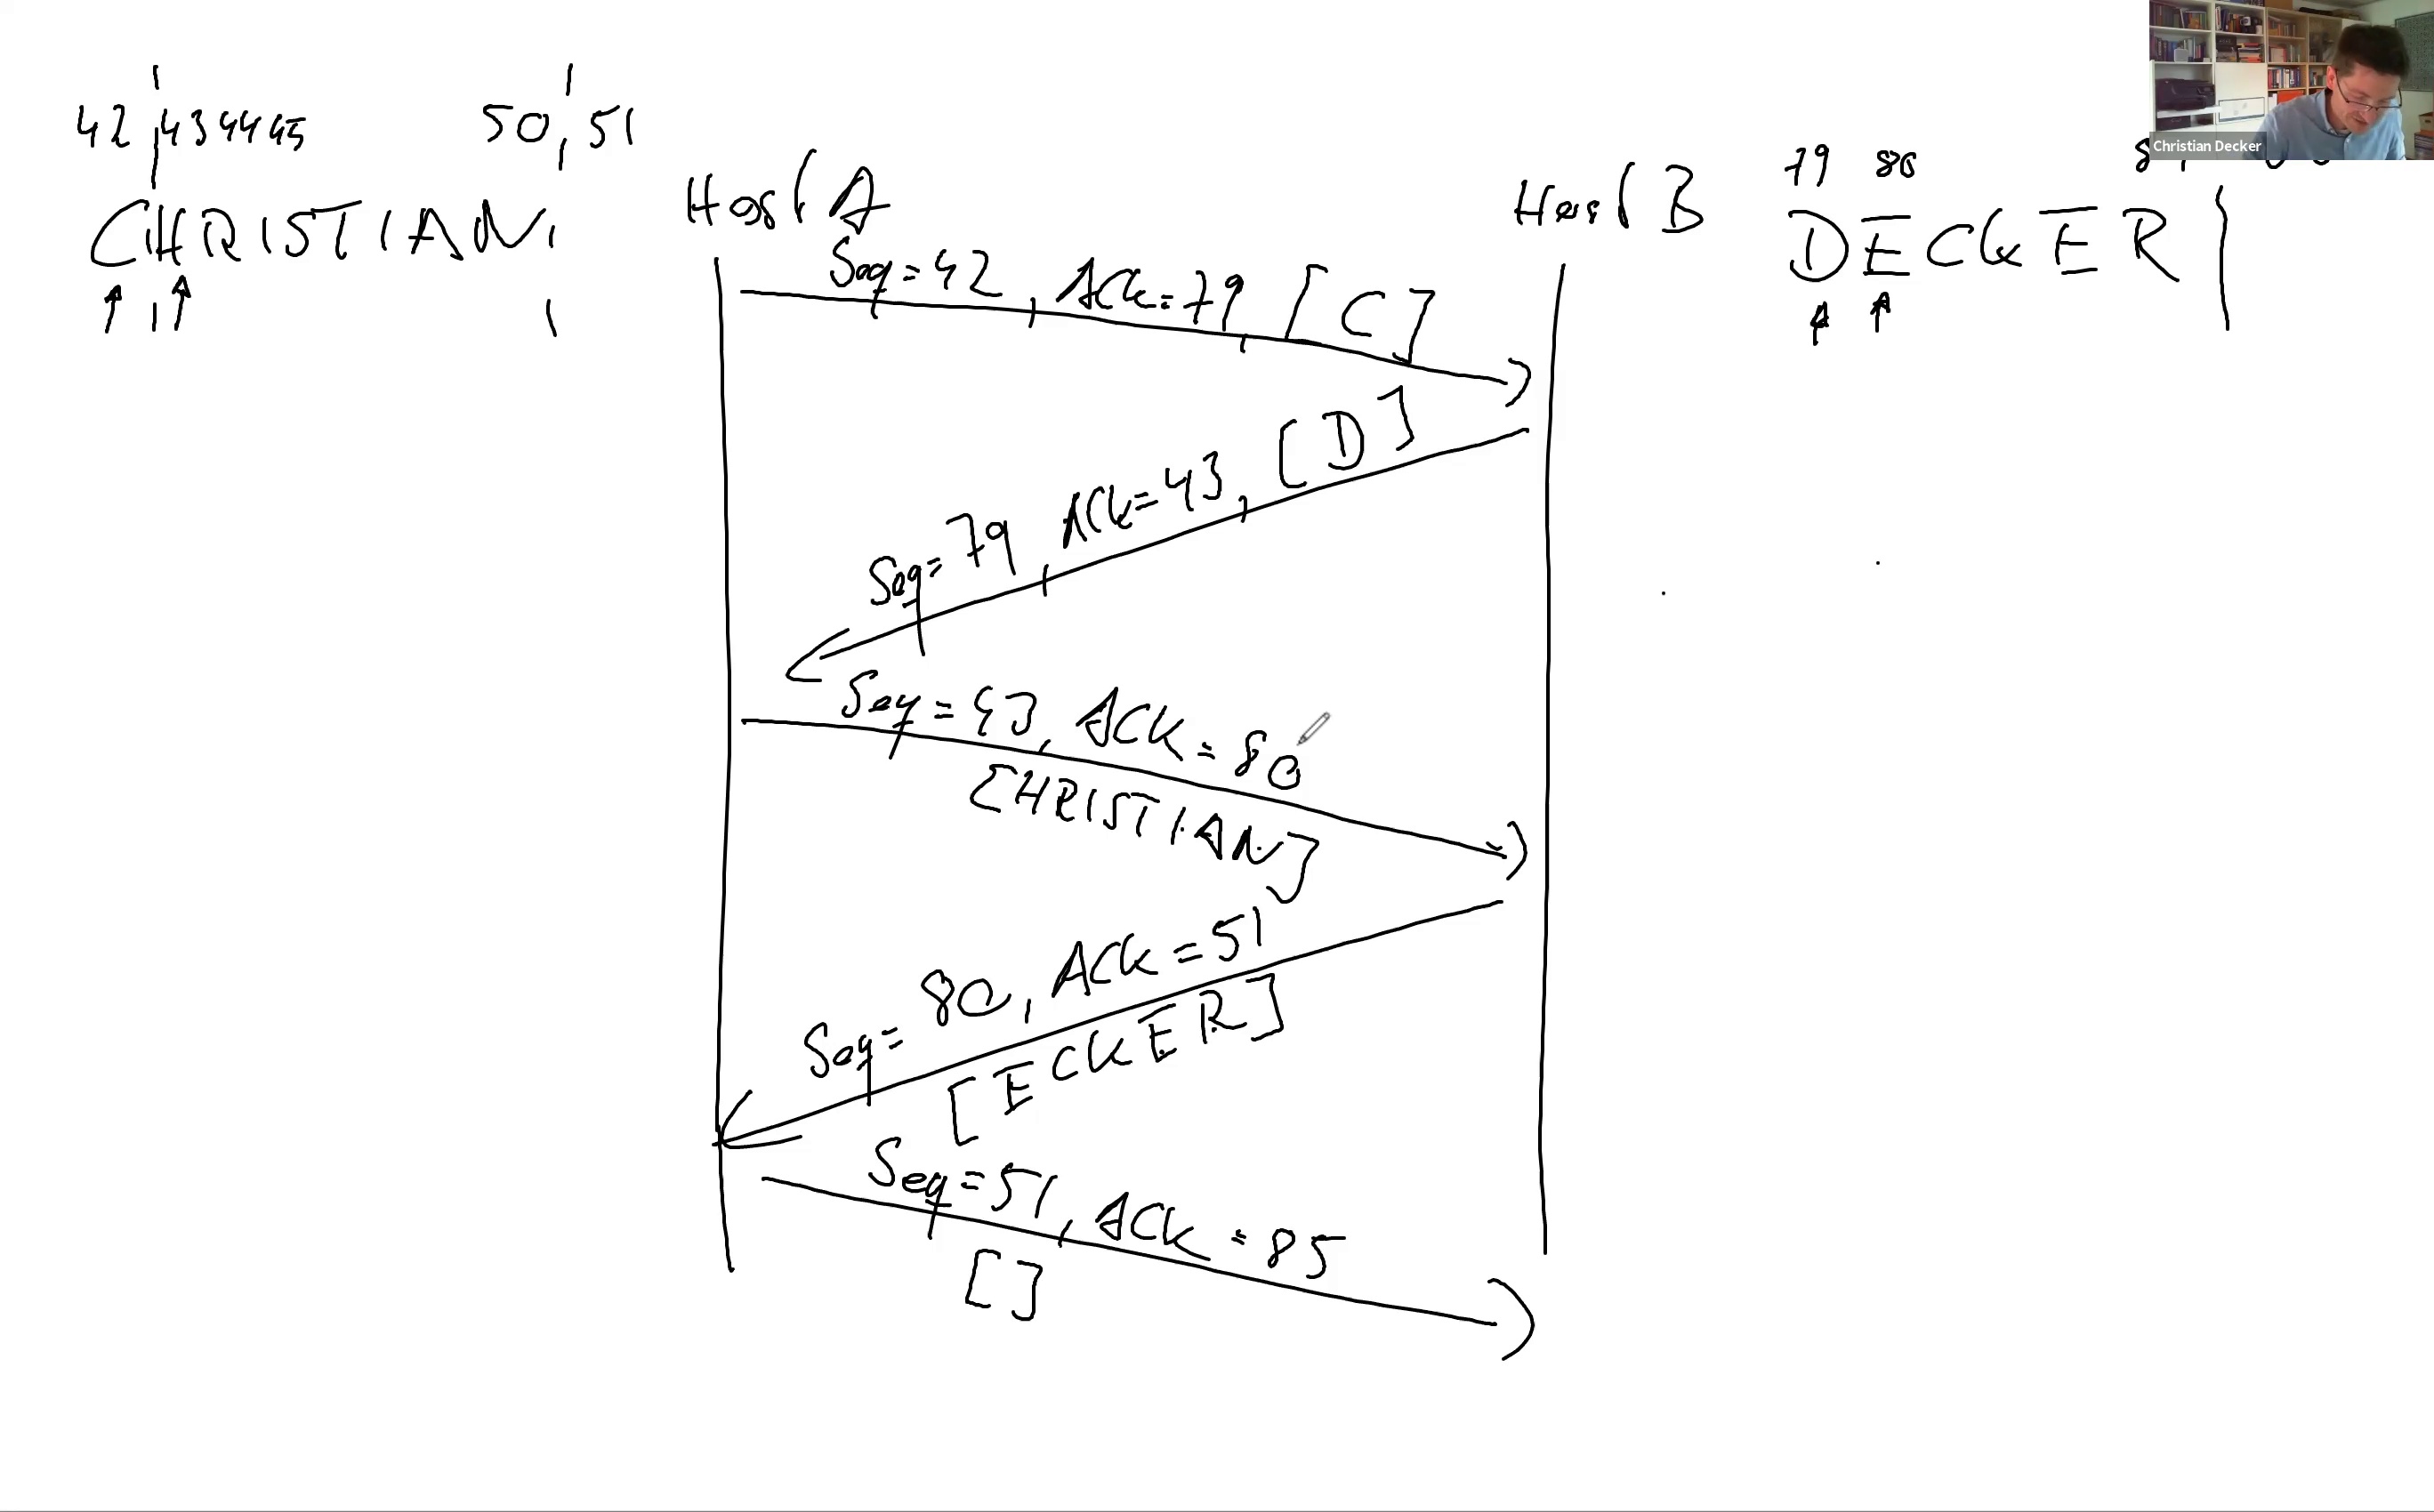 42 43 44 45 50, 51
CHRISTIAN
Host A
Host B
79 80
DECKER
Christian Decker
Seq=42, ACK=79, [C]
Seq=79, ACK=43, [D]
Seq=43, ACK=80
[HRISTIAN]
Seq=80, ACK=51
[ECKER]
Seq=51, ACK=85
[]